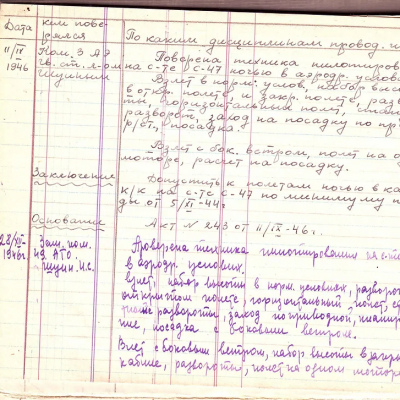 Дата
кем пове-
рялся
По каким дисциплинам провод.
11/IX
1946
Ком. 3 АЭ
гв. ст. л-ом
Щуциным
Поверена техника пилотиров
на с-те С-47 ночью в аэродр. услов
Взлет в норм. услов, набор высо
в откр. полет и закр. полет, разв
ты, горизонтальный полет, план
разворот, заход на посадку по пр
р/ст., посадка.
Взлет с бок. ветром, полет на о
моторе, расчет на посадку.
Заключение
Допустить к полетам ночью в ка
к/к на с-те С-47 по минимуму п
ды от 5/VII-44г.
Основание
Акт N 243 от 11/IX-46г.
28/XII
1946г.
Зам. ком.
АТО
Щуцин И.С.
Проверена техника пилотирования на с-те
в аэродр. условиях.
Взлет, набор высоты в норм. условиях, разворо
открытом полете, горизонтальный полет,
развороты, заход по приводной, планир
посадка с боковым ветром.
Взлет с боковым ветром, набор высоты в закры
кабине, развороты, полет на одном мотор